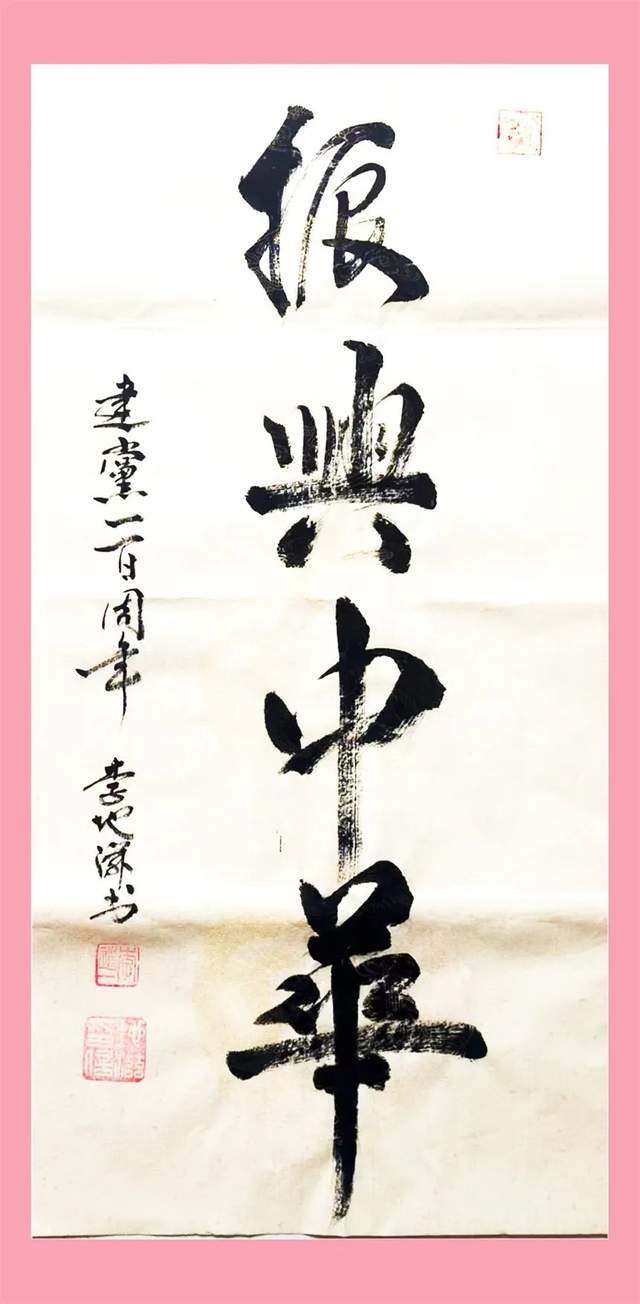 振興中華
建黨一百周年 李地洙书